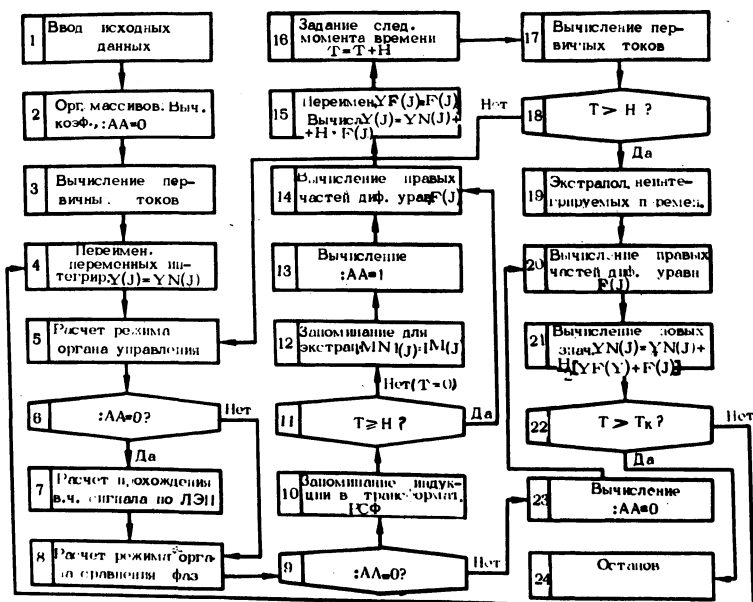 1
Ввод исходных
данных
2
Орг. массивов. Выч.
коэф., :АА=0
3
Вычисление пер-
вичны. токов
4
Переимен.
переменных ин-
тегрир. Y(J)=YN(J)
5
Расчет режима
органа управления
6
:АА=0?
Нет
Да
7
Расчет прохождения
в.ч. сигнала по ЛЭП
8
Расчет режима орга-
на сравнения фаз
9
:АА=0?
Нет
10
Запоминание индук-
ции в трансформат.
РСФ
11
T≥H ?
Да
Нет(T=0)
12
Запоминание для
экстрап. MN1(J)=1M(J)
13
Вычисление
:АА=1
14
Вычисление правых
частей диф. урав. F(J)
15
Переимен. YF(J)=F(J)
Вычисл. Y(J)=YN(J)+
+H·F(J)
16
Задание след.
момента времени
T=T+H
17
Вычисление пер-
вичных токов
18
T>H ?
Нет
Да
19
Экстрапол. неинте-
грируемых перемен.
20
Вычисление правых
частей диф. уравн
F(J)
21
Вычисление новых
знач. YN(J)=YN(J)+
H/2[YF(Y)+F(J)]
22
T>Tк ?
Нет
Да
23
Вычисление
:АА=0
24
Останов